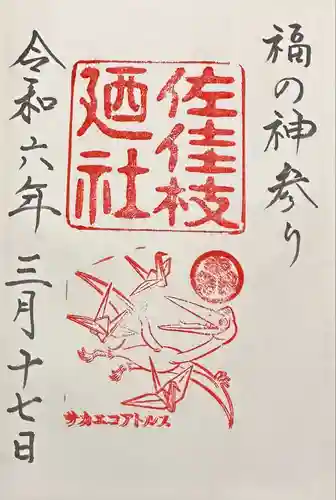 福の神参り
佐佳枝
廼社
サカエコアトルス
令和六年 三月十七日